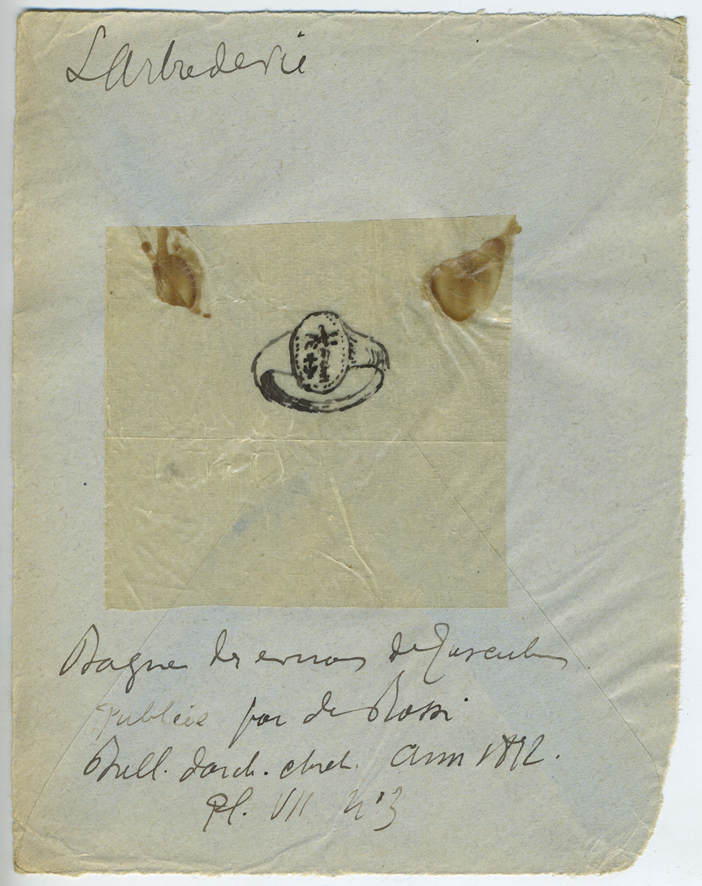 Larbrederie
Bague des environs de Tusculum
Publiée par de Rossi
Bull. d'arch. chret. Ann 1872.
Pl. VII n°3